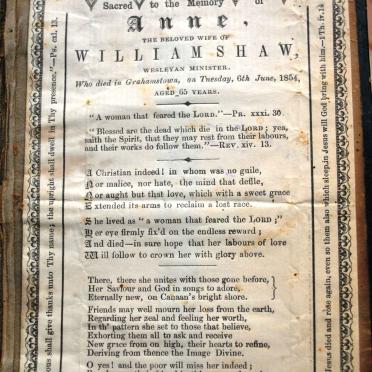 Sacred to the Memory of
Anne,
THE BELOVED WIFE OF
WILLIAM SHAW,
WESLEYAN MINISTER.
Who died in Grahamstown, on Tuesday, 6th June, 1854,
AGED 65 YEARS.
"A woman that feared the LORD."—PR. xxxi. 30.
"Blessed are the dead which die in the LORD; yea,
saith the Spirit, that they may rest from their labours,
and their works do follow them."—REV. xiv. 13.
A Christian indeed! in whom was no guile,
Nor malice, nor hate, the mind that defile,
Nor aught but that love, which with a sweet grace
Extended its arms to reclaim a lost race.
She lived as "a woman that feared the LORD;"
Her eye firmly fix'd on the endless reward;
And died—in sure hope that her labours of love
Will follow to crown her with glory above.
There, there she unites with those gone before,
Her Saviour and God in songs to adore,
Eternally new, on Canaan's bright shore.
Friends may well mourn her loss from the earth,
Regarding her zeal and feeling her worth,
In th' pattern she set to those that believe,
Exhorting them all to ask and receive
New grace from on high, their hearts to refine,
Deriving from thence the Image Divine.
O yes! and the poor will miss her indeed;
shall give thanks unto Thy name; the upright shall dwell in Thy presence."—Ps. cxl. 13.
Jesus died and rose again, even so them also which sleep in Jesus will God bring with him.—1 Th. iv. 14.